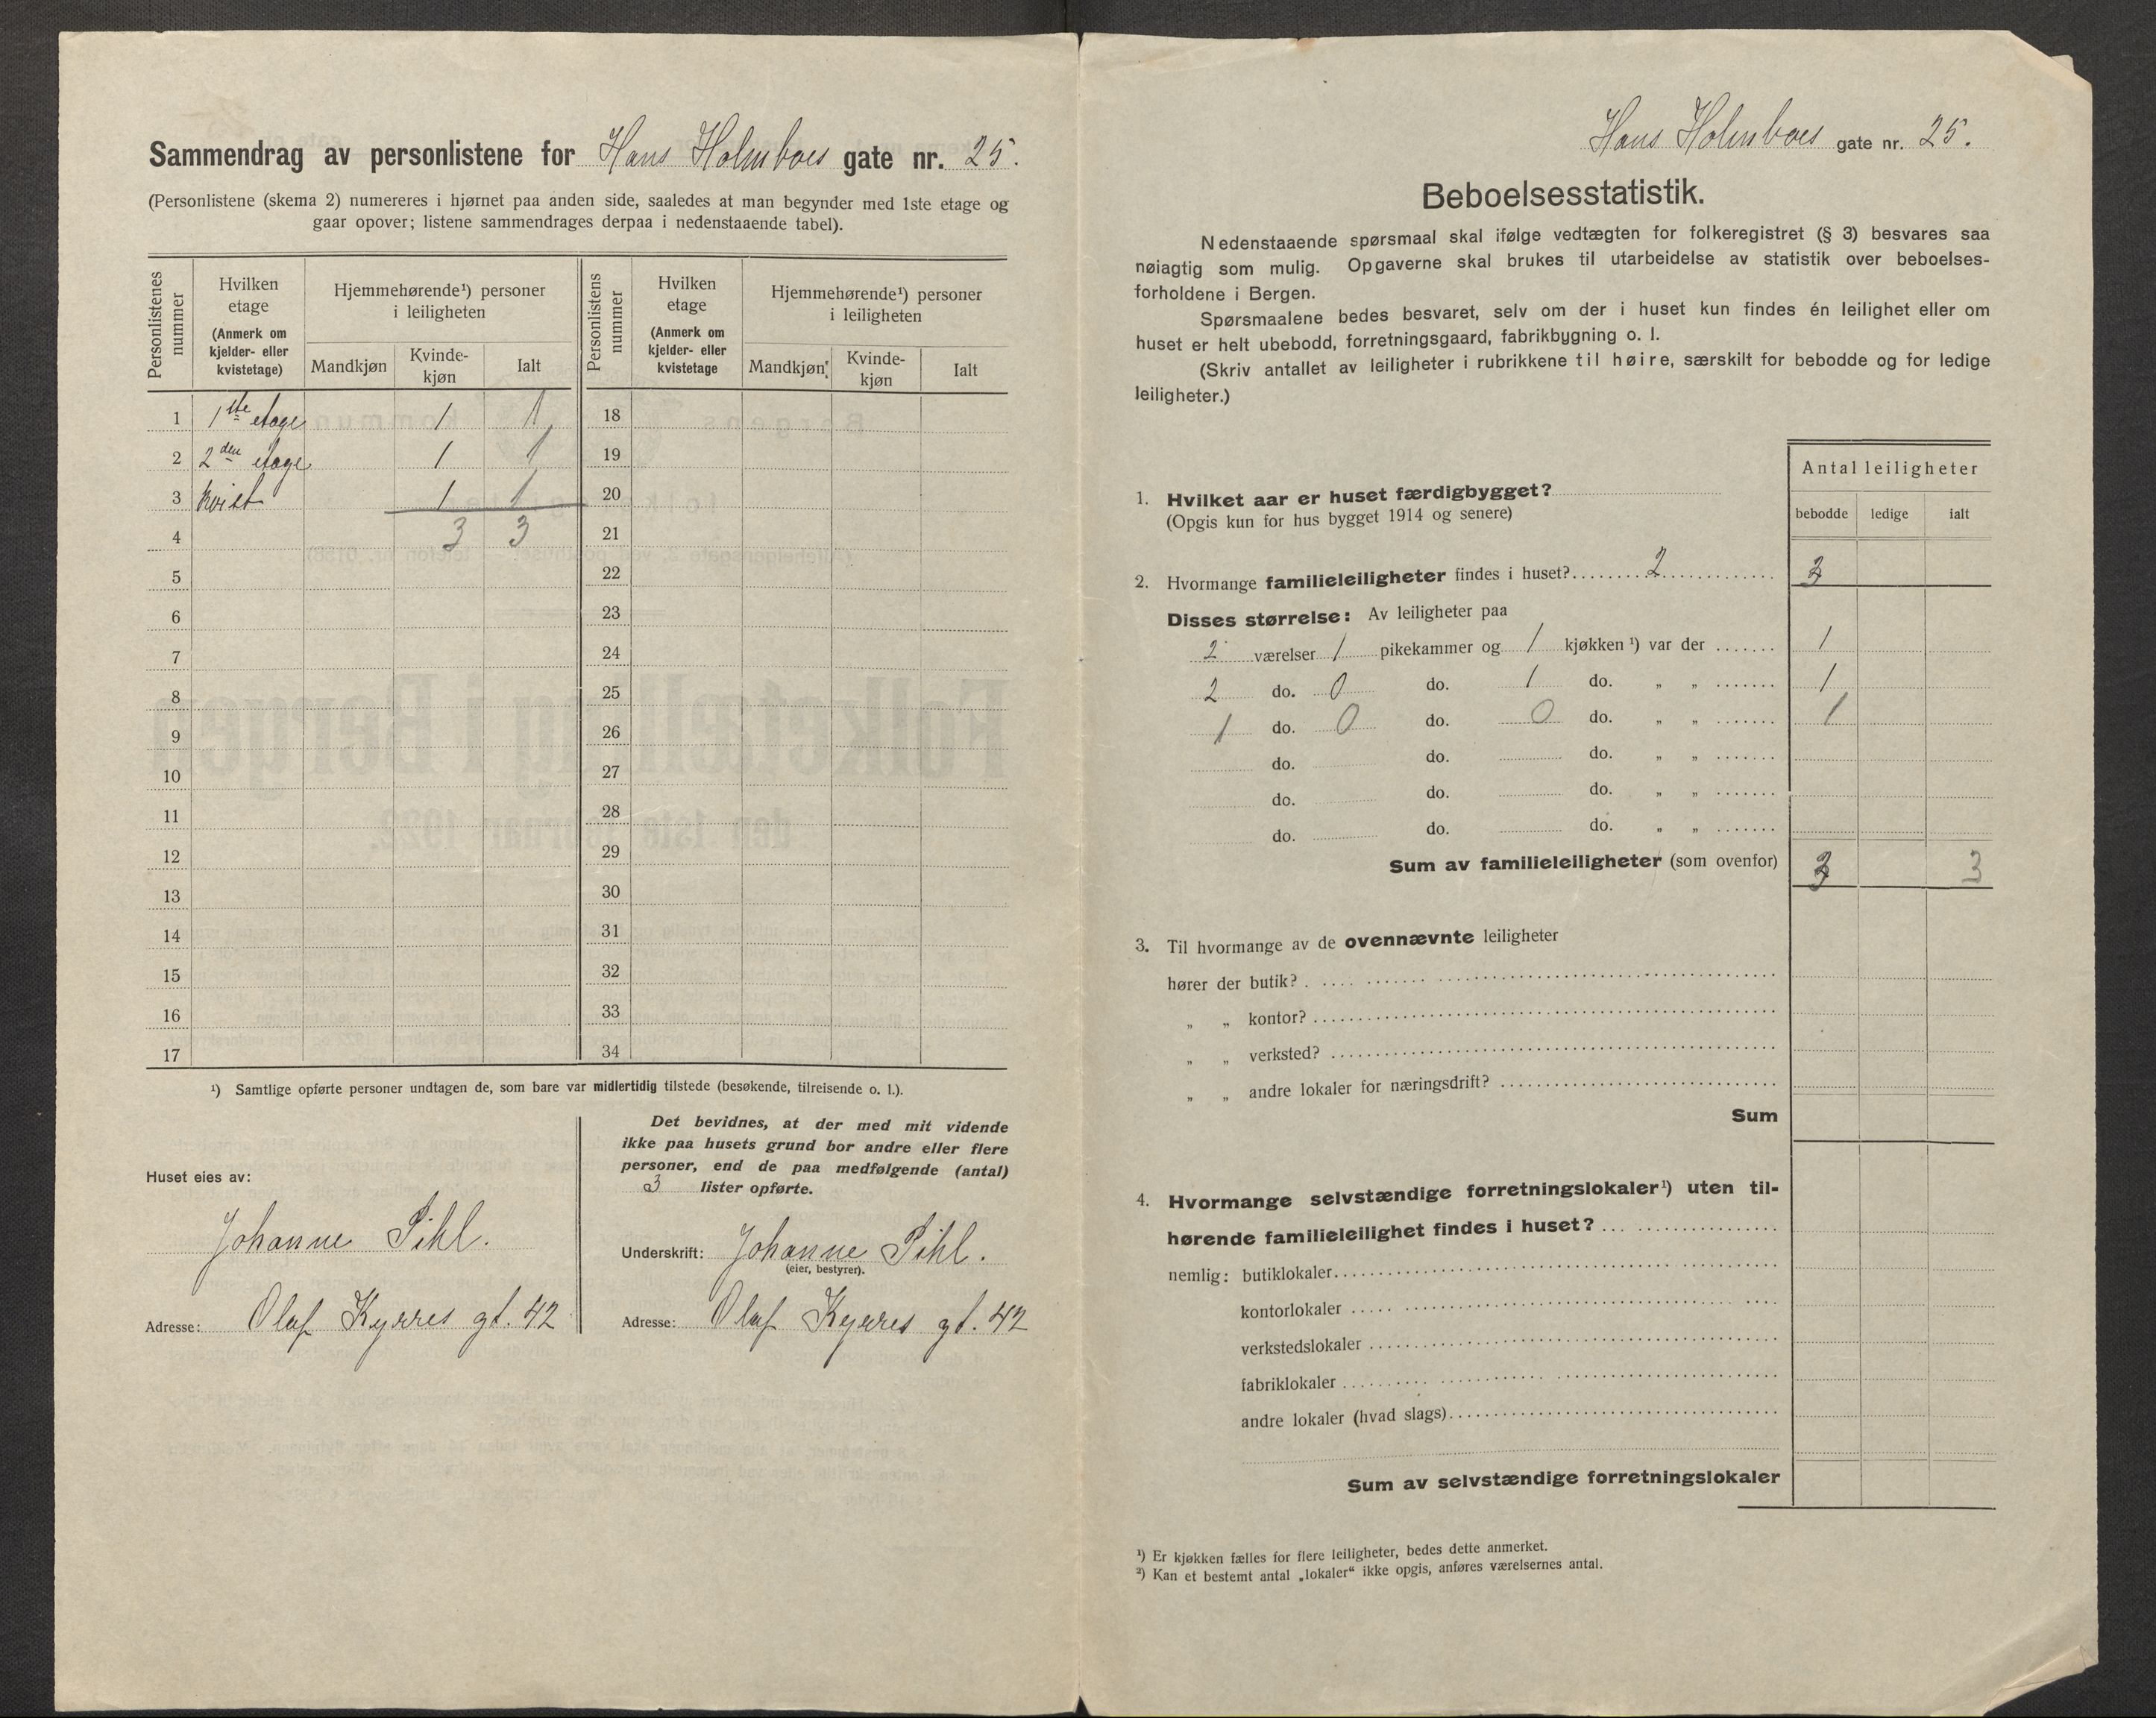 Sammendrag av personlistene for Hans Holmboes gate nr. 25.
(Personlistene (skema 2) numereres i hjørnet paa anden side, saaledes at man begynder med 1ste etage og
gaar opover; listene sammendrages derpaa i nedenstaaende tabel).
Personlistenes nummer
Hvilken etage (Anmerk om kjelder- eller kvistetage)
Hjemmehørende¹) personer i leiligheten
Mandkjøn Kvindekjøn Ialt
Personlistens nummer
Hvilken etage (Anmerk om kjelder- eller kvistetage
Hjemmehørende¹) personer i leiligheten
Mandkjøn Kvindekjøn Ialt
1 1ste etage 1 1 18
2 2den etage 1 1 19
3 Kvist 1 1 20
4 3 3 21
5 22
6 23
7 24
8 25
9 26
10 27
11 28
12 29
13 30
14 31
15 32
16 33
17 34
¹) Samtlige opførte personer undtagen de, som bare var midlertidig tilstede (besøkende, tilreisende o. l.).
Huset eies av:
Johanne Pihl.
Adresse: Olaf Kyrres gt. 42
Det bevidnes, at der med mit vidende
ikke paa husets grund bor andre eller flere
personer, end de paa medfølgende (antal)
3 lister opførte.
Underskrift: Johanne Pihl.
(eier, bestyrer).
Adresse: Olaf Kyrres gt. 42
Hans Holmboes gate nr. 25.
Beboelsesstatistik.
Nedenstaaende spørsmaal skal ifølge vedtægten for folkeregistret (§ 3) besvares saa
nøiagtig som mulig. Opgaverne skal brukes til utarbeidelse av statistik over beboelses-
forholdene i Bergen.
Spørsmaalene bedes besvaret, selv om der i huset kun findes én leilighet eller om
huset er helt ubebodd, forretningsgaard, fabrikbygning o. l.
(Skriv antallet av leiligheter i rubrikkene til høire, særskilt for bebodde og for ledige
leiligheter.)
Antal leiligheter
bebodde ledige ialt
1. Hvilket aar er huset færdigbygget?
(Opgis kun for hus bygget 1914 og senere)
2. Hvormange familieleiligheter findes i huset? 2 3
Disses størrelse: Av leiligheter paa
2 værelser 1 pikekammer og 1 kjøkken ¹) var der 1
2 do. 0 do. 1 do. „ „ 1
1 do. 0 do. 0 do. „ „ 1
do. do. do. „ „
do. do. do. „ „
do. do. do. „ „
Sum av familieleiligheter (som ovenfor) 3 3
3. Til hvormange av de ovennævnte leiligheter
hører der butik?
„ „ kontor?
„ „ verksted?
„ „ andre lokaler for næringsdrift?
Sum
4. Hvormange selvstændige forretningslokaler¹) uten til-
hørende familieleilighet findes i huset?
nemlig: butiklokaler
kontorlokaler
verkstedslokaler
fabriklokaler
andre lokaler (hvad slags)
Sum av selvstændige forretningslokaler
¹) Er kjøkken fælles for flere leiligheter, bedes dette anmerket.
²) Kan et bestemt antal „lokaler“ ikke opgis, anføres værelsernes antal.